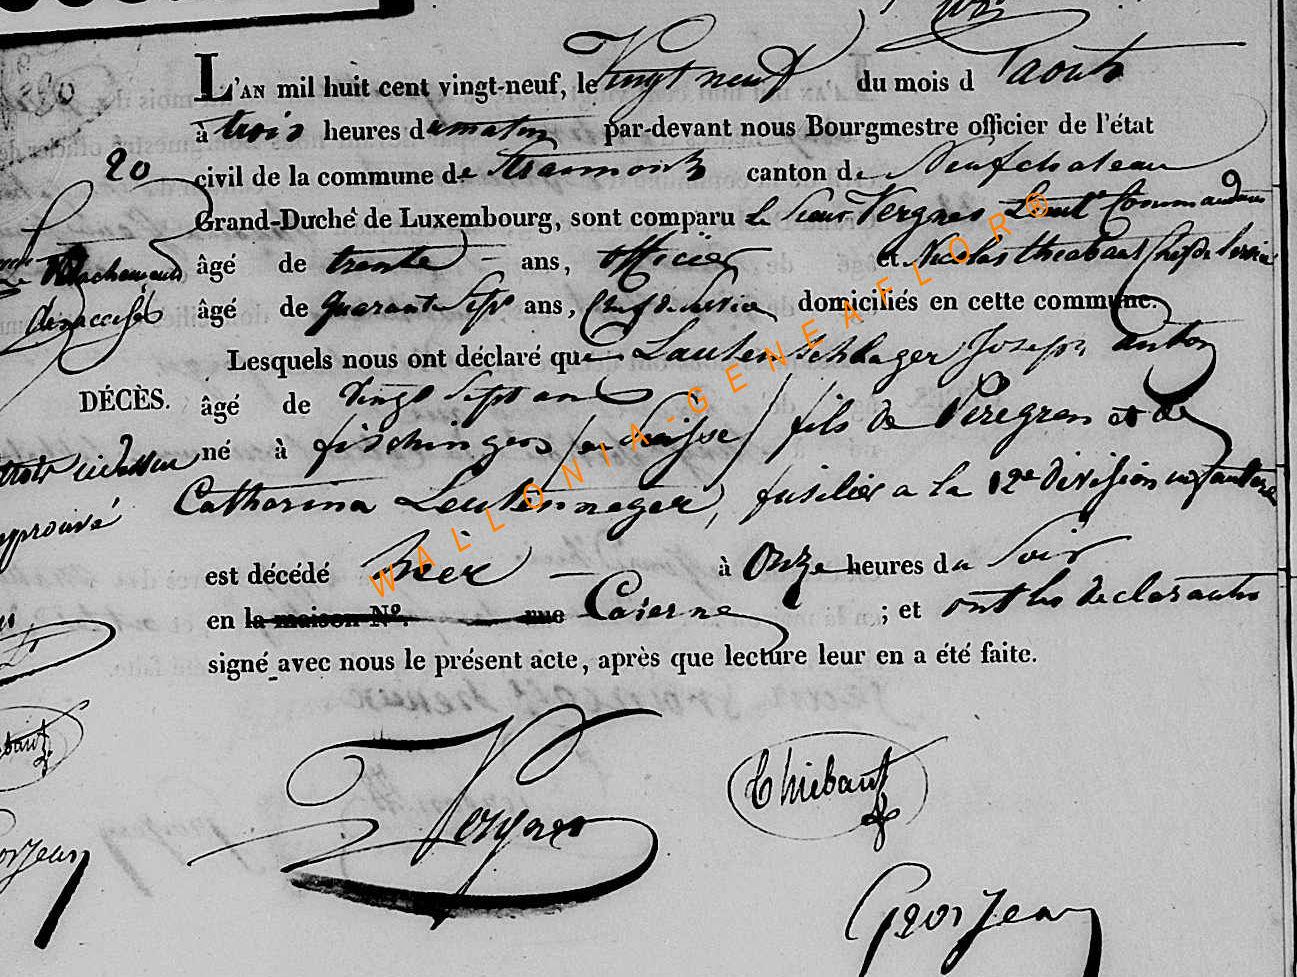 L'AN mil huit cent vingt-neuf, le Vingt neuf du mois d'aout
à trois heures du matin par-devant nous Bourgmestre officier de l'état
20
civil de la commune de Tramont canton de Neufchateau
Grand-Duché de Luxembourg, sont comparu le Sieur Vergnes Lieut Commandant
âgé de trente ans, officier et Nicolas thiebaut Chef de Service
âgé de quarante Sept ans, Chef de service domiciliés en cette commune.
Lesquels nous ont déclaré que Lautenschlager Joseph anton
DÉCÈS. âgé de Vingt Sept ans
né à fischingen en Suisse fils de Peregren et de
Catharina Leutenneger, fusilier a la 12e division infanterie
approuvé
est décédé hier à Onze heures du Soir
en la maison N°. rue Caserne ; et ont les declarants
signé avec nous le présent acte, après que lecture leur en a été faite.
Vergnes
Thiebaut
GeorJean
WALLONIA-GENEAFLOR®